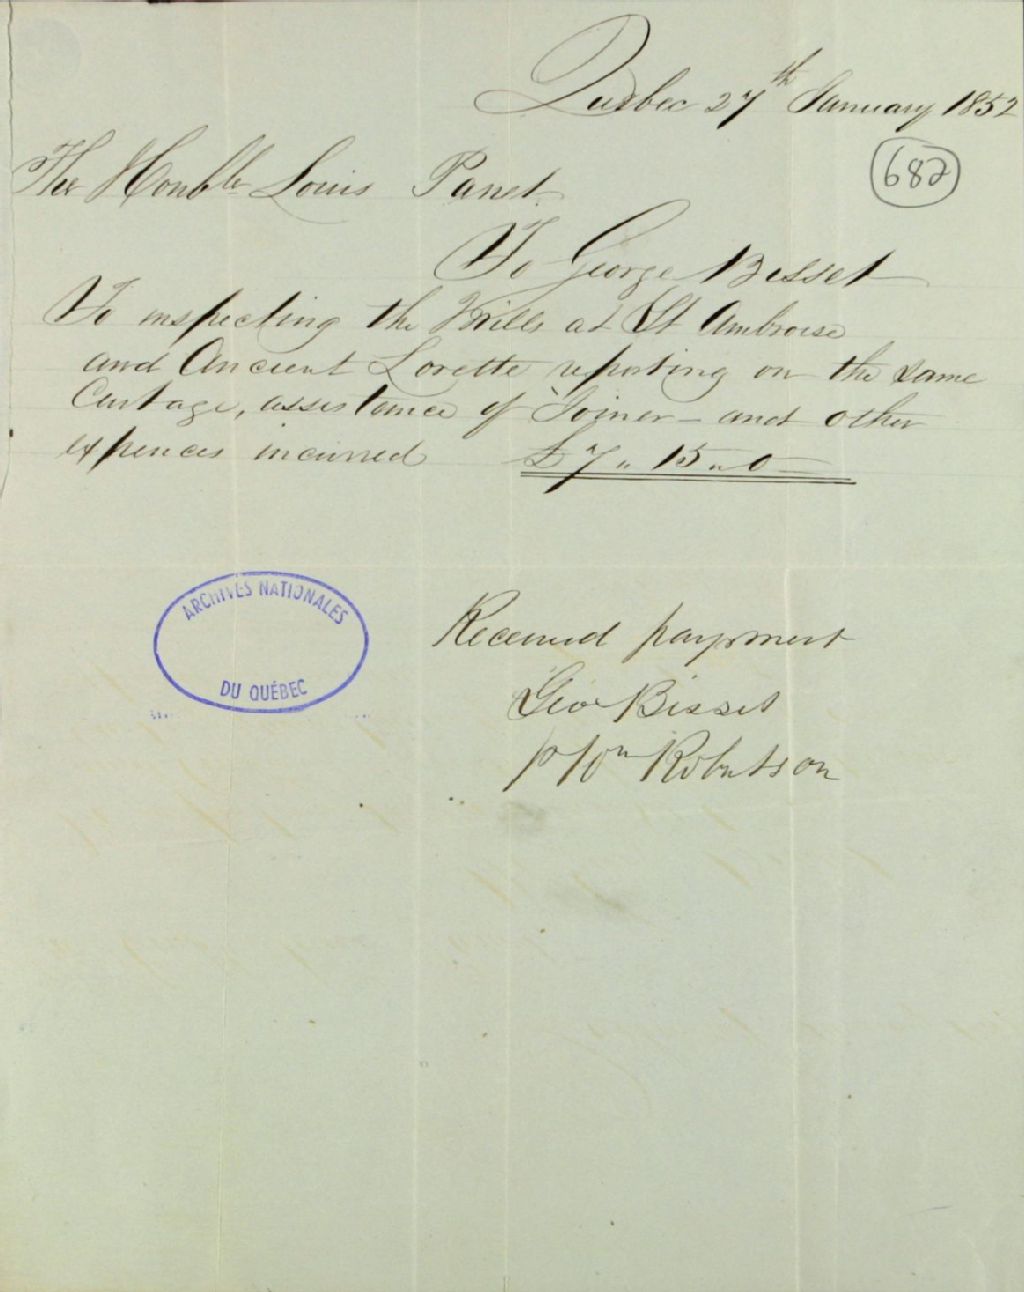 Quebec 27th January 1852
682
The Honble Louis Panet
To George Bisset
To inspecting the Mills at St Ambroise
and Ancient Lorette reporting on the same
Cartage, assistance of Joiner – and other
expences incurred £7 „ 15 „ 0 –
ARCHIVES NATIONALES
DU QUÉBEC
Received payment
Geo Bisset
p Wm Robertson